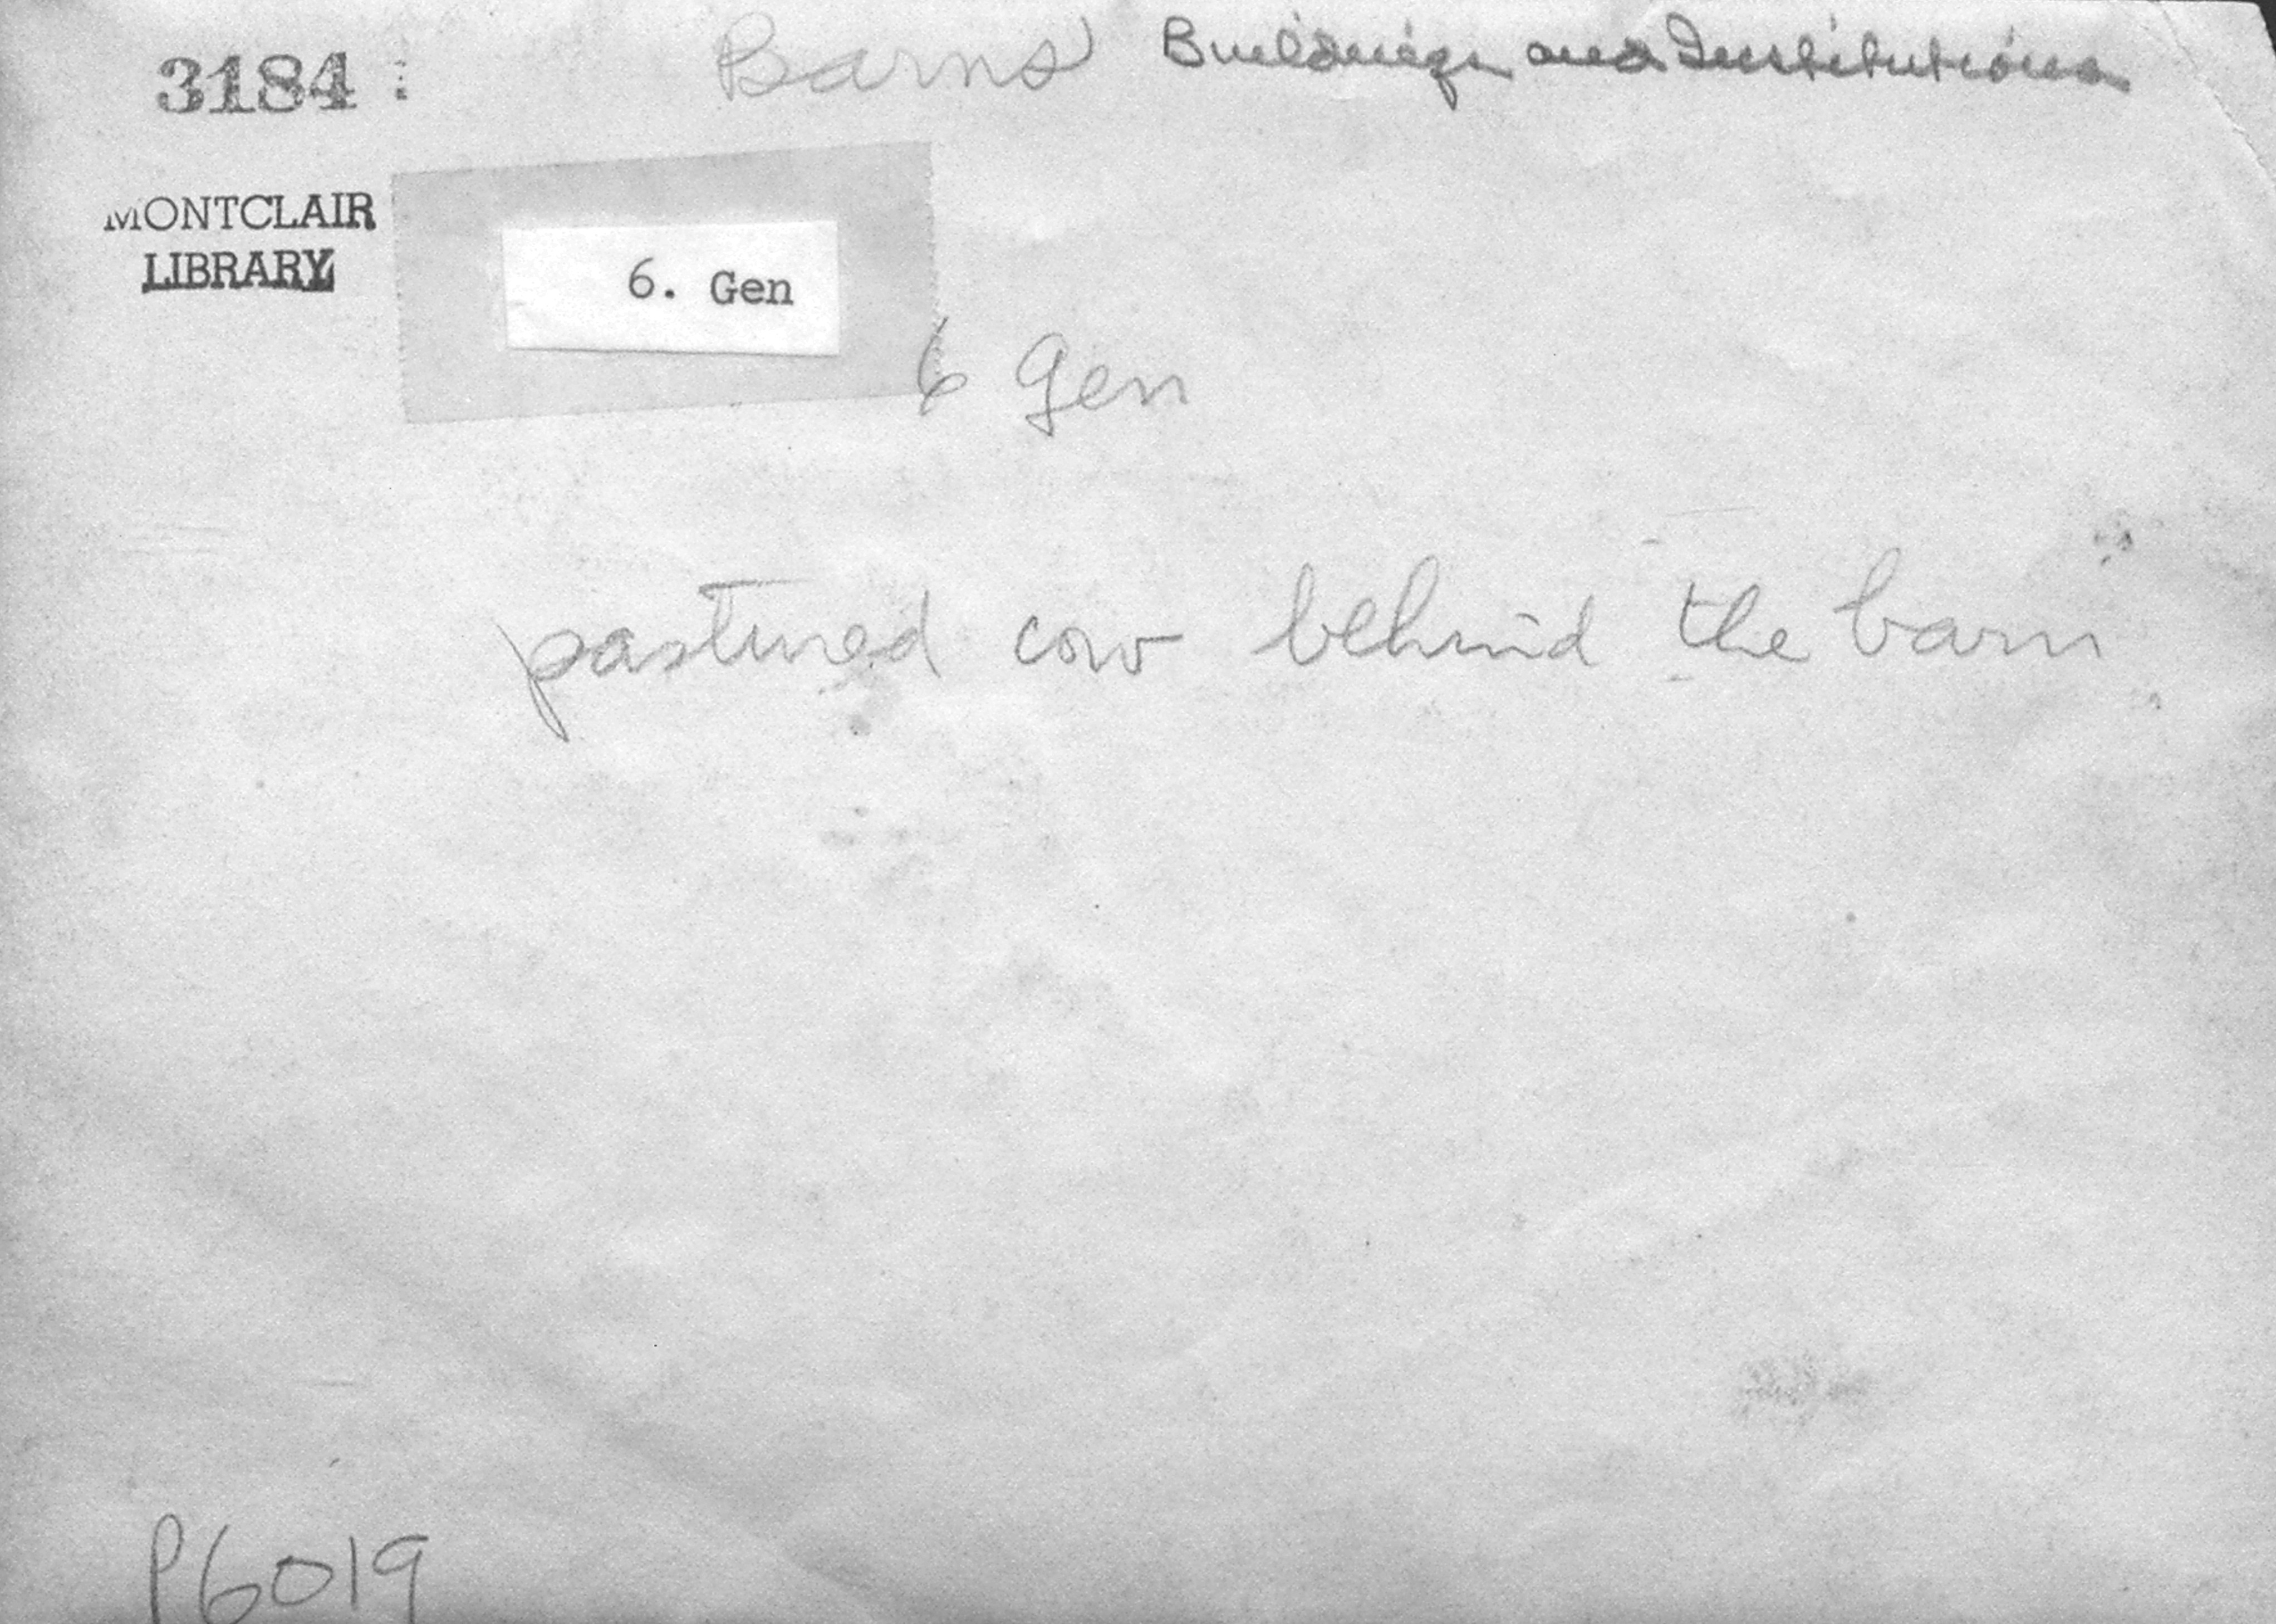 3184 :
Barns Buildings and Institutions
MONTCLAIR
LIBRARY
6. Gen
6 Gen
pastured cow behind the barn
P6019